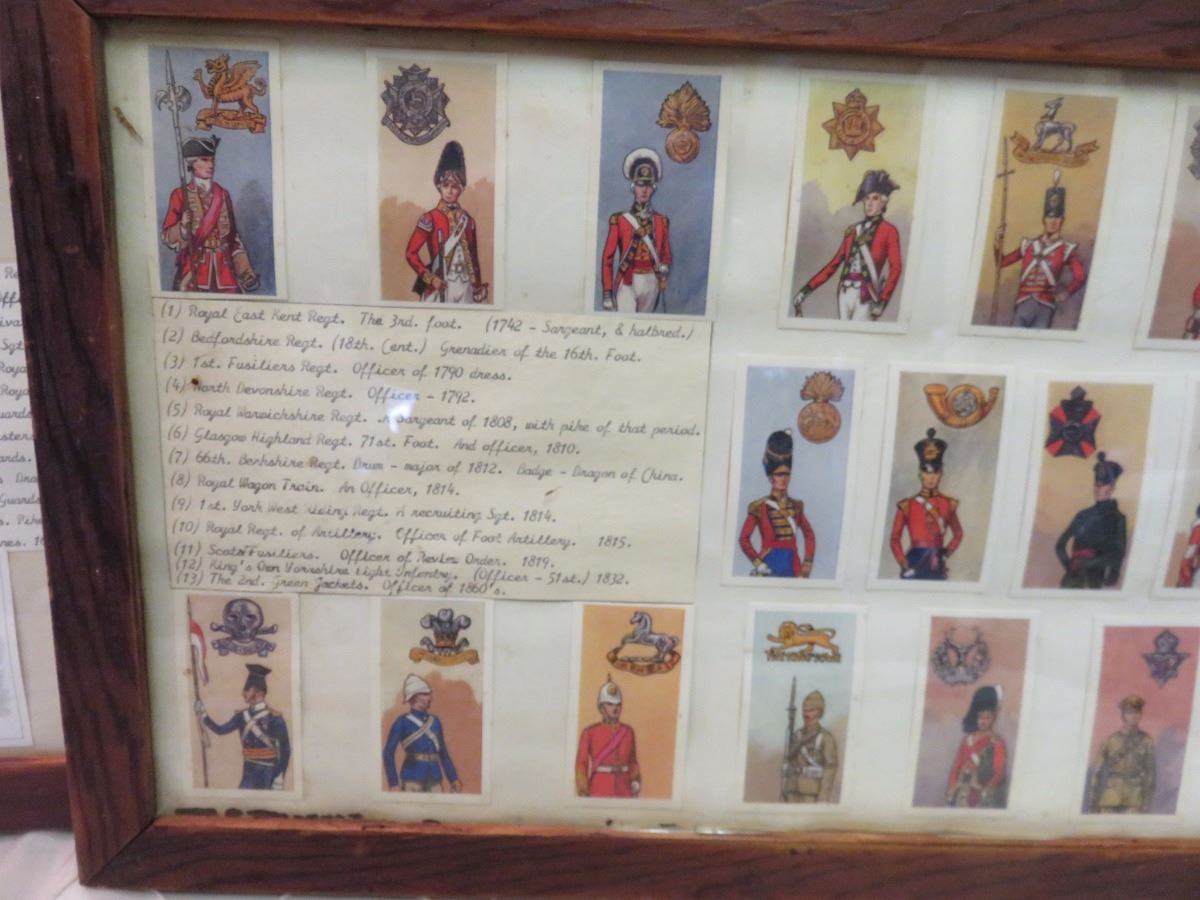 (1) Royal East Kent Regt. The 3rd. foot. (1742 - Sargeant, & halbred.)
(2) Bedfordshire Regt. (18th. Cent.) Grenadier of the 16th. Foot.
(3) 1st. Fusiliers Regt. Officer of 1790 dress.
(4) North Devonshire Regt. Officer - 1792.
(5) Royal Warwichshire Regt. A Sargeant of 1808, with pike of that period.
(6) Glasgow Highland Regt. 71st. Foot. And officer, 1810.
(7) 66th. Berkshire Regt. Drum - major of 1812. Badge - Dragon of China.
(8) Royal Wagon Train. An Officer, 1814.
(9) 1st. York West Rieing Regt. A recruiting Sgt. 1814.
(10) Royal Regt. of Artillery. Officer of Foot Artillery. 1815.
(11) Scots Fusiliers. Officer of Review Order. 1819.
(12) King's Own Yorkshire Light Infantry. (Officer - 51st.) 1832.
(13) The 2nd. Green Jackets. Officer of 1860's.